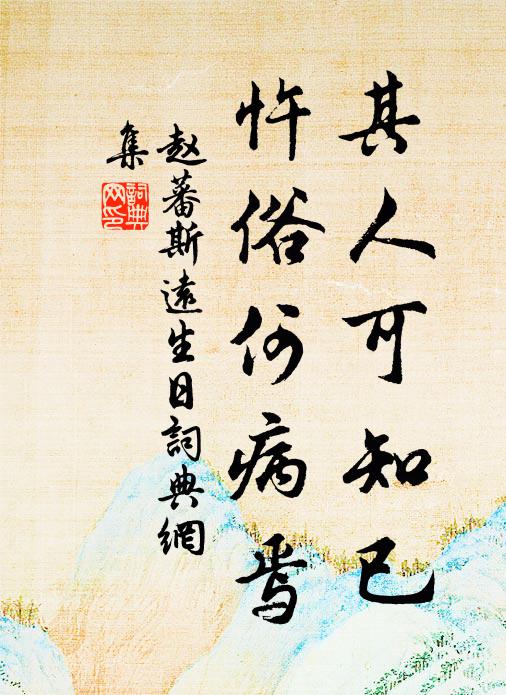 其人可知已
忤俗何病焉
赵蕃斯遠生日詞典網
集
詞典网印